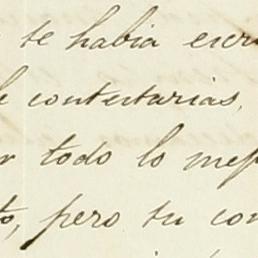 te habia escr
contestarias,
r todo lo mej
to, pero tu con